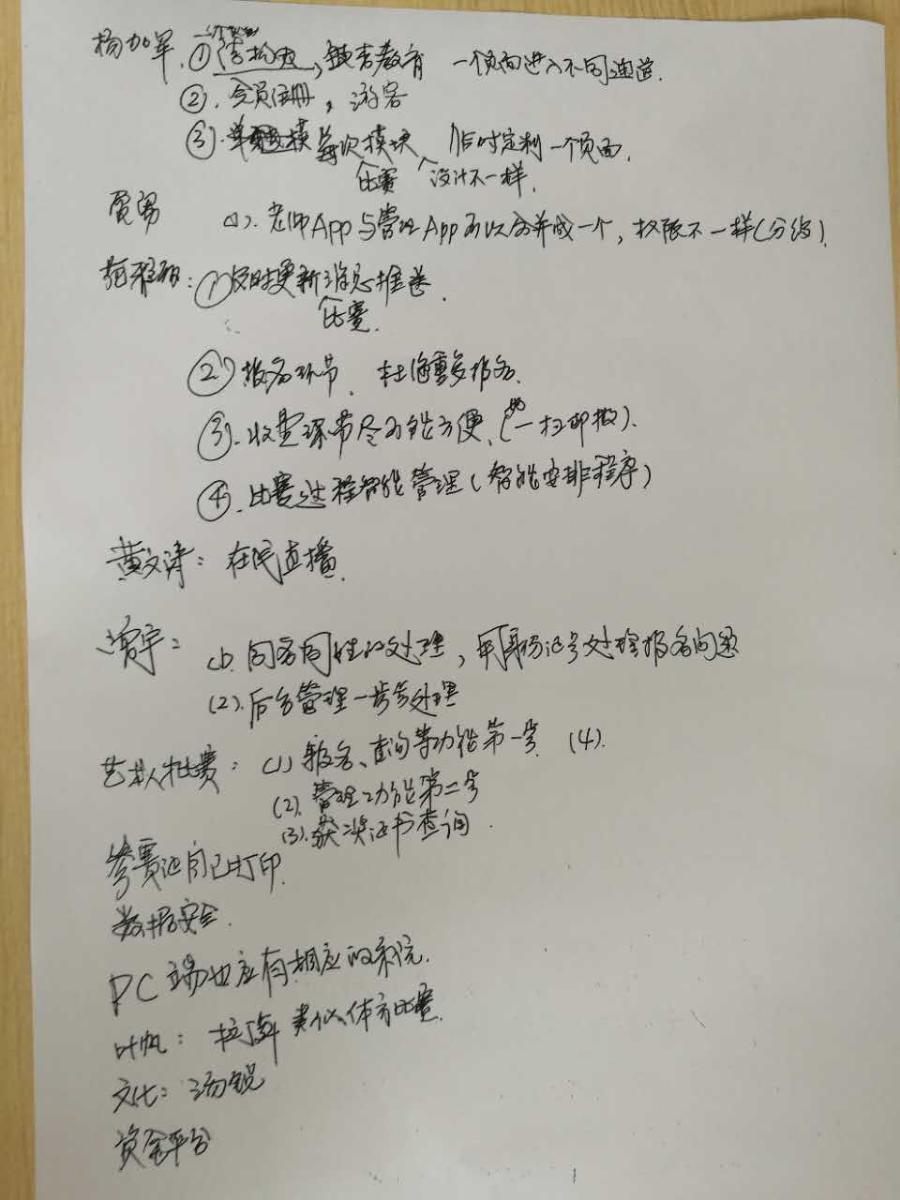 杨加军.① ,敏吉教育 一个页面进入不同通道.
②.会员注册,游客
③.每次模块、临时定制一个页面.
比赛 设计不一样.
贾勇 (1).老师App与管理App可以合并成一个,权限不一样(分级).
①及时更新消息推送.
比赛.
②报名环节、杜绝重复报名.
③.收费环节尽可能方便、(一扫即报).
④.比赛过程智能管理(智能安排程序)
黄文涛:在线直播.
(1).同名同姓的处理,用身份证号处理报名问题
(2).后台管理一步步处理
艺术人才比赛:(1)报名、查询等功能第一步.(4).
(2).管理功能第二步
(3).获奖证书查询.
参赛证自己打印.
数据安全.
PC端也应有相应的系统.
叶帆:拉丁舞 类似体育比赛.
文化:汤锐
资金平台